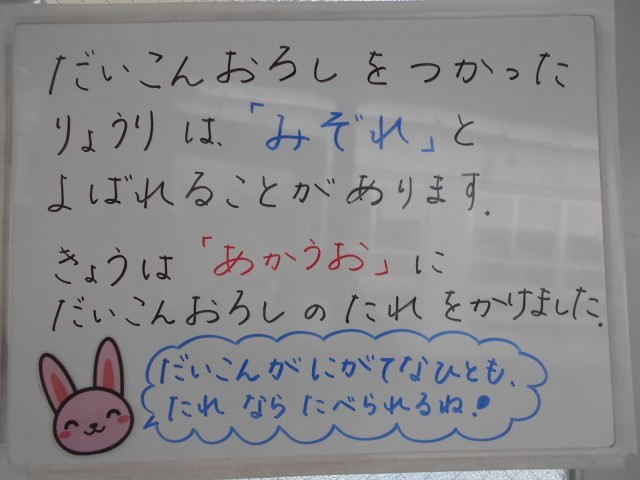 だいこんおろしをつかった
りょうりは、「みぞれ」と
よばれることがあります.
きょうは「あかうお」に
だいこんおろしのたれをかけました.
だいこんがにがてなひとも、
たれならたべられるね!